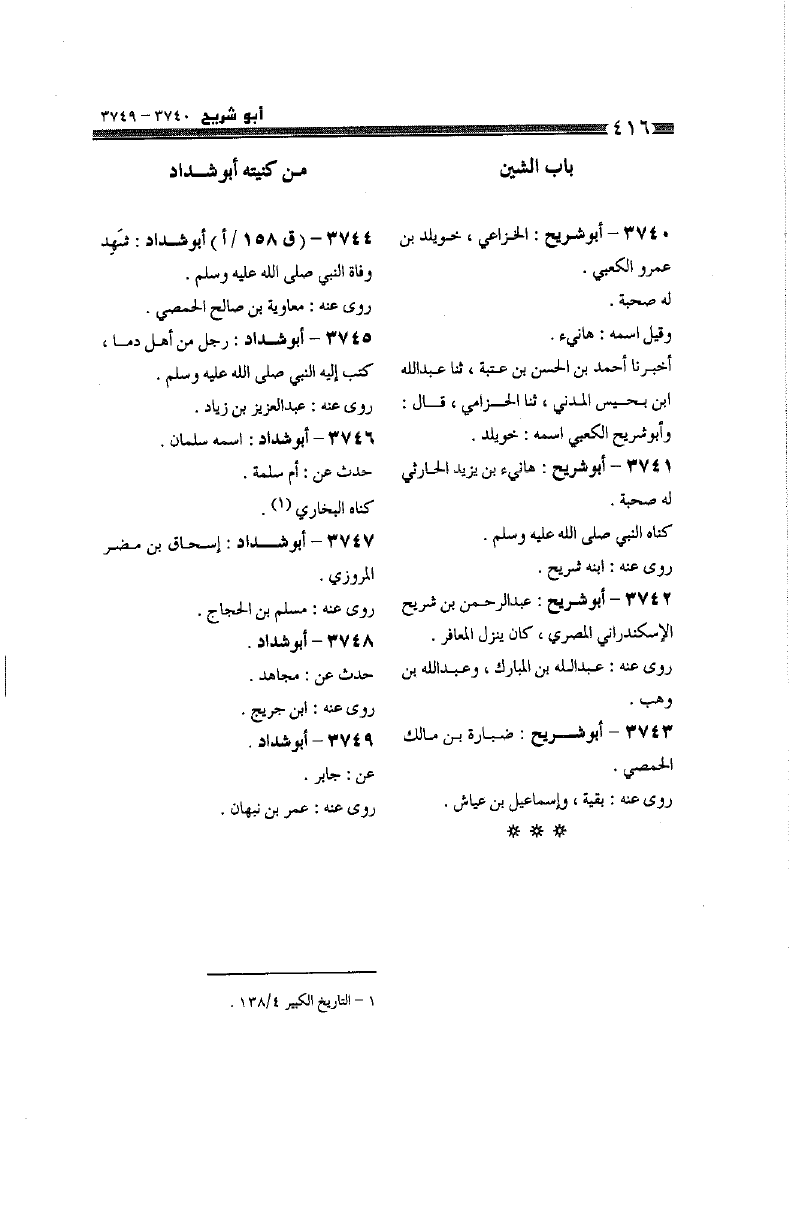 ٤١٦ أبو شريح ٣٧٤٠ – ٣٧٤٩
باب الشين
٣٧٤٠ – أبوشريح : الخزاعي ، خويلد بن
عمرو الكعبي .
له صحبة .
وقيل اسمه : هانيء .
أخبرنا أحمد بن الحسن بن عتبة ، ثنا عبدالله
ابن بحيس المدني ، ثنا الحزامي ، قال :
وأبوشريح الكعبي اسمه : خويلد .
٣٧٤١ – أبوشريح : هانيء بن يزيد الحارثي
له صحبة .
كناه النبي صلى الله عليه وسلم .
روى عنه : ابنه شريح .
٣٧٤٢ – أبوشريح : عبدالرحمن بن شريح
الإسكندراني المصري ، كان ينزل المعافر .
روى عنه : عبدالله بن المبارك ، وعبدالله بن
وهب .
٣٧٤٣ – أبوشريح : ضبارة بن مالك
الحمصي .
روى عنه : بقية ، وإسماعيل بن عياش .
* * *
من كنيته أبوشداد
٣٧٤٤ – (ق ١٥٨ / أ) أبوشداد : شَهِد
وفاة النبي صلى الله عليه وسلم .
روى عنه : معاوية بن صالح الحمصي .
٣٧٤٥ – أبوشداد : رجل من أهل دما ،
كتب إليه النبي صلى الله عليه وسلم .
روى عنه : عبدالعزيز بن زياد .
٣٧٤٦ – أبوشداد : اسمه سلمان .
حدث عن : أم سلمة .
كناه البخاري (١) .
٣٧٤٧ – أبوشداد : إسحاق بن مضر
المروزي .
روى عنه : مسلم بن الحجاج .
٣٧٤٨ – أبوشداد .
حدث عن : مجاهد .
روى عنه : ابن جريج .
٣٧٤٩ – أبوشداد .
عن : جابر .
روى عنه : عمر بن نبهان .
١ – التاريخ الكبير ١٣٨/٤ .